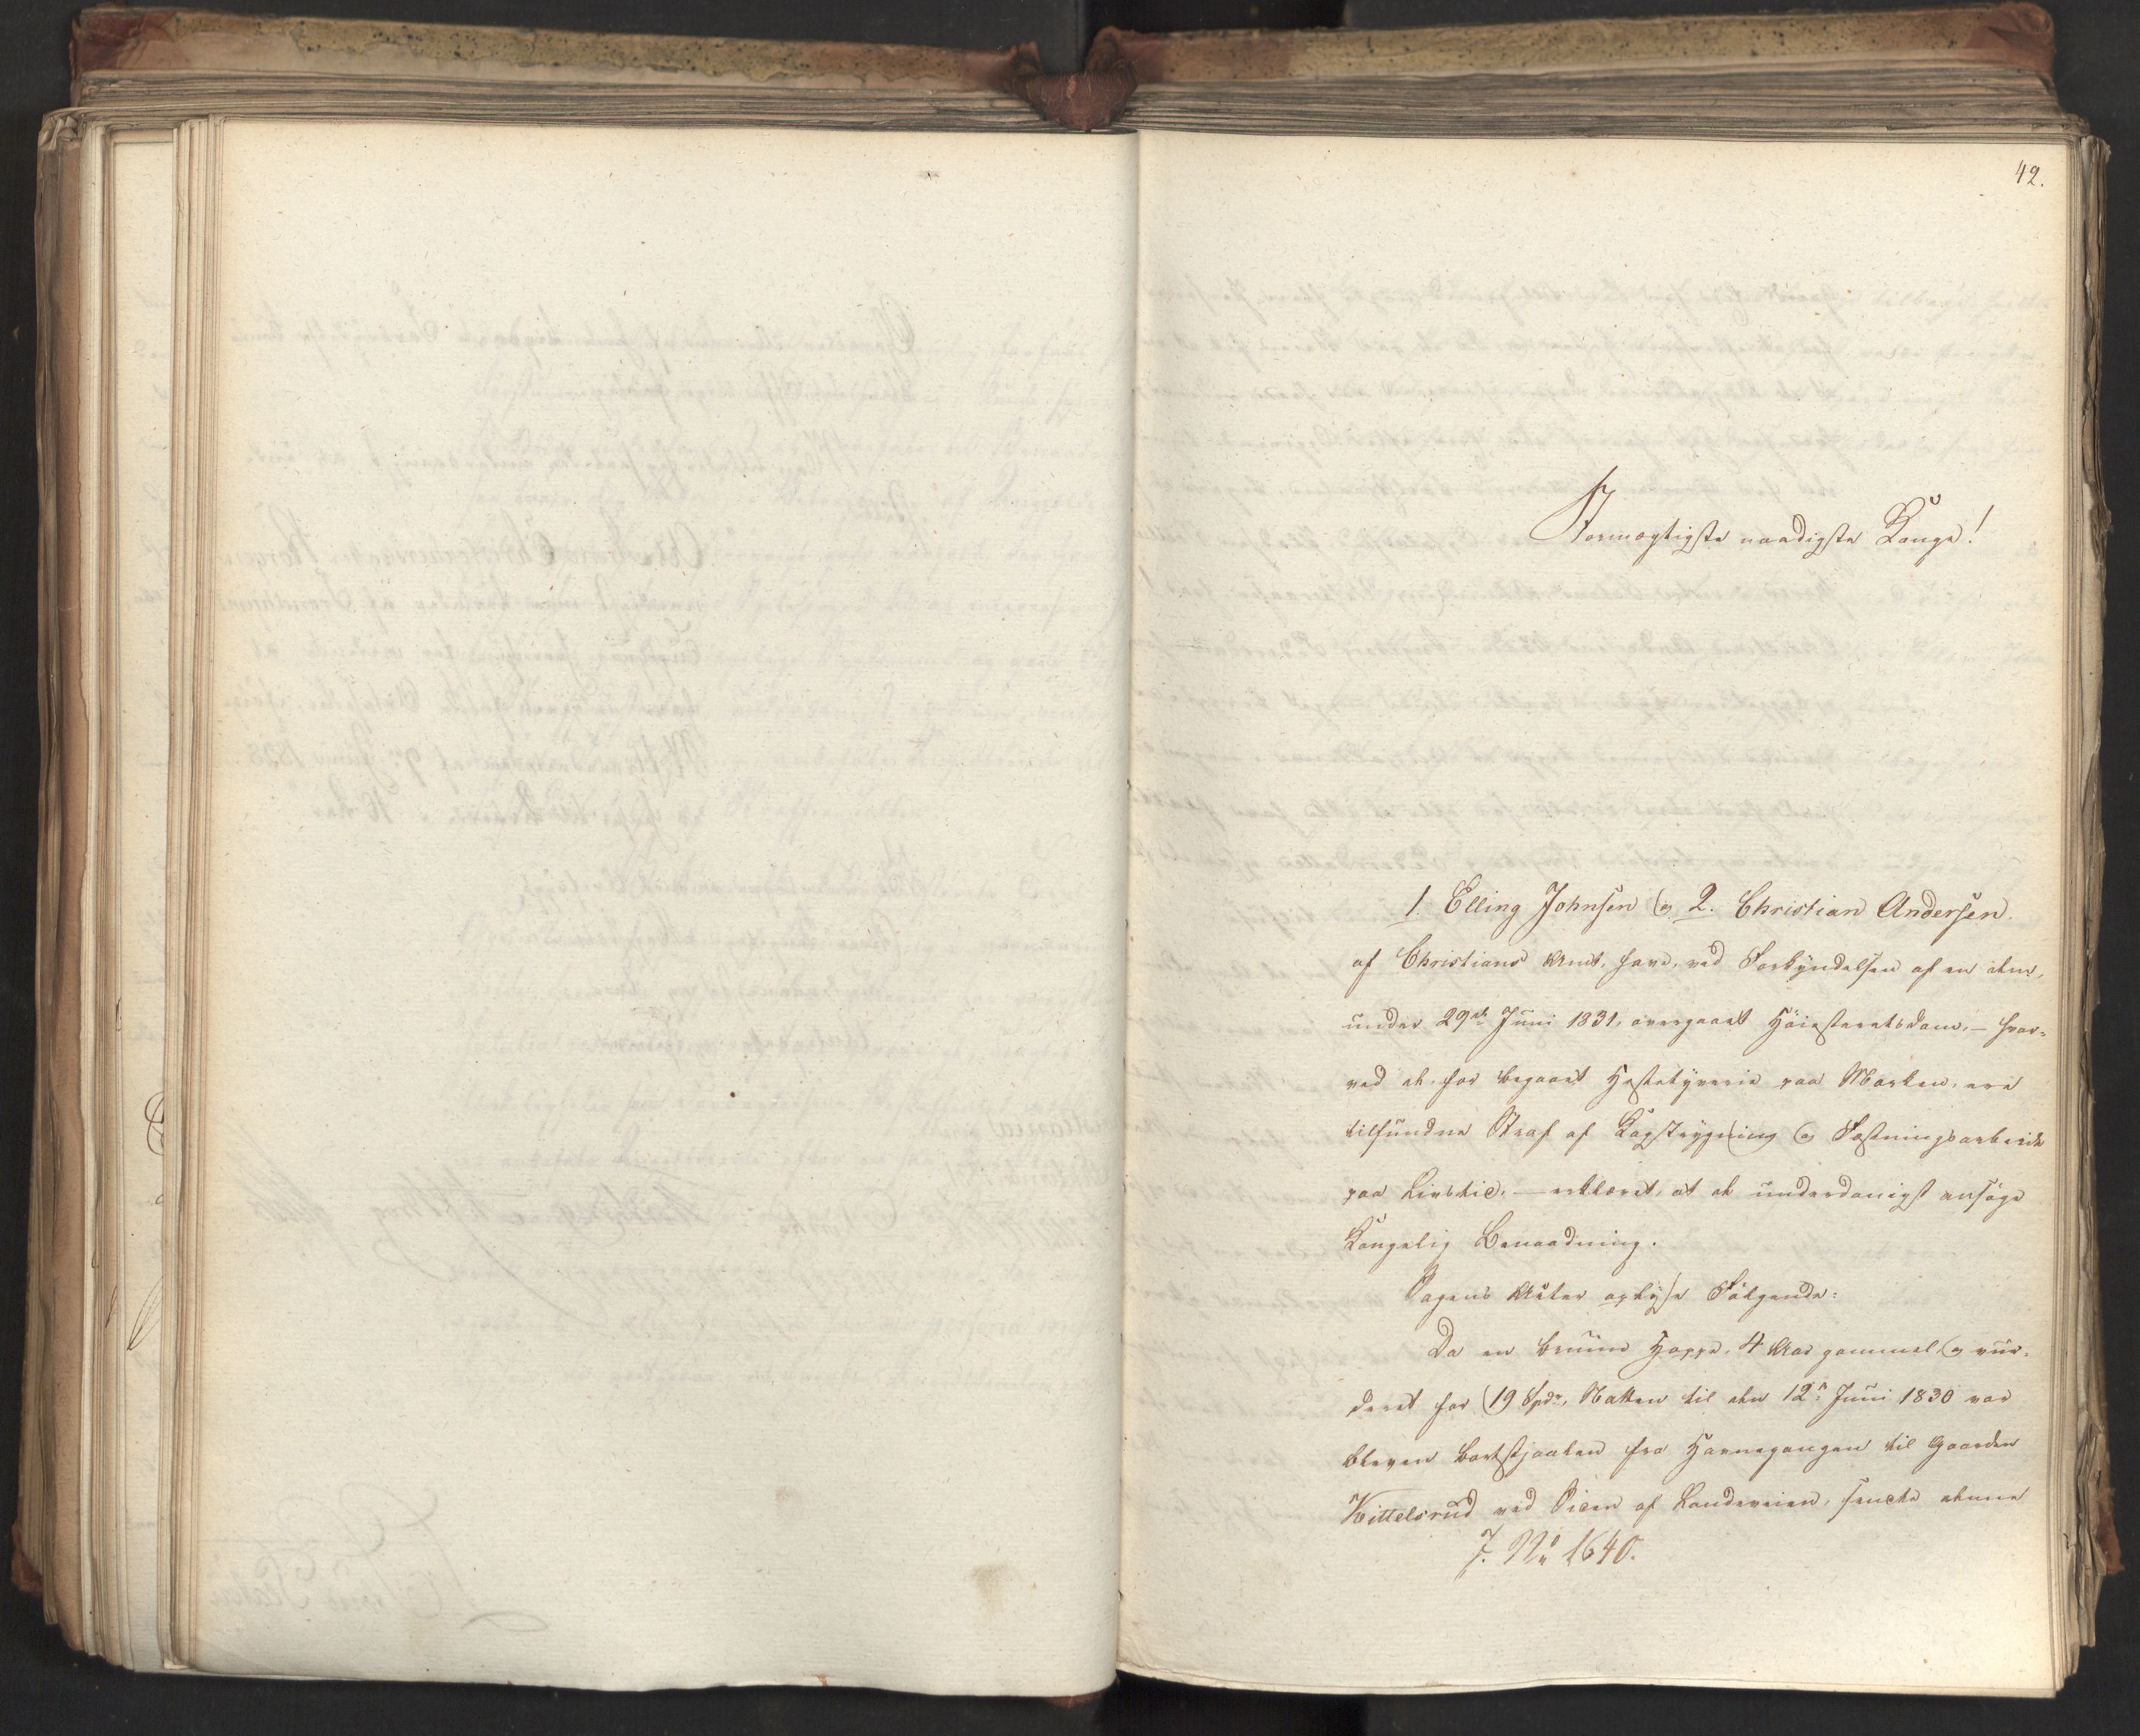 42.
Stormægtigste naadigste Konge!
1. Elling Johnsen og 2. Christian Andersen
af Christians Amt, have, ved Forkyndelsen af en dem,
under 29de Juni 1831, overgaaet Höiesteretsdom, – hvor-
ved de, for begaaet Hestetyverie paa Marken, ere
tilfundne Straf af Kagstrygning og Fæstningsarbeide
paa Livstid, – erklæret, at de underdanigst ansöge
Kongelig Benaadning.
Sagens Akter oplyse Fölgende:
Da en bruun Hoppe, 4 Aar gammel, og vur-
deret for 19 Spdr, Natten til den 12te Juni 1830 var
bleven bortstjaalen fra Havnegangen til Gaarden
Kittelsrud ved Siden af Landeveien, fandtes denne
J. No 1640.